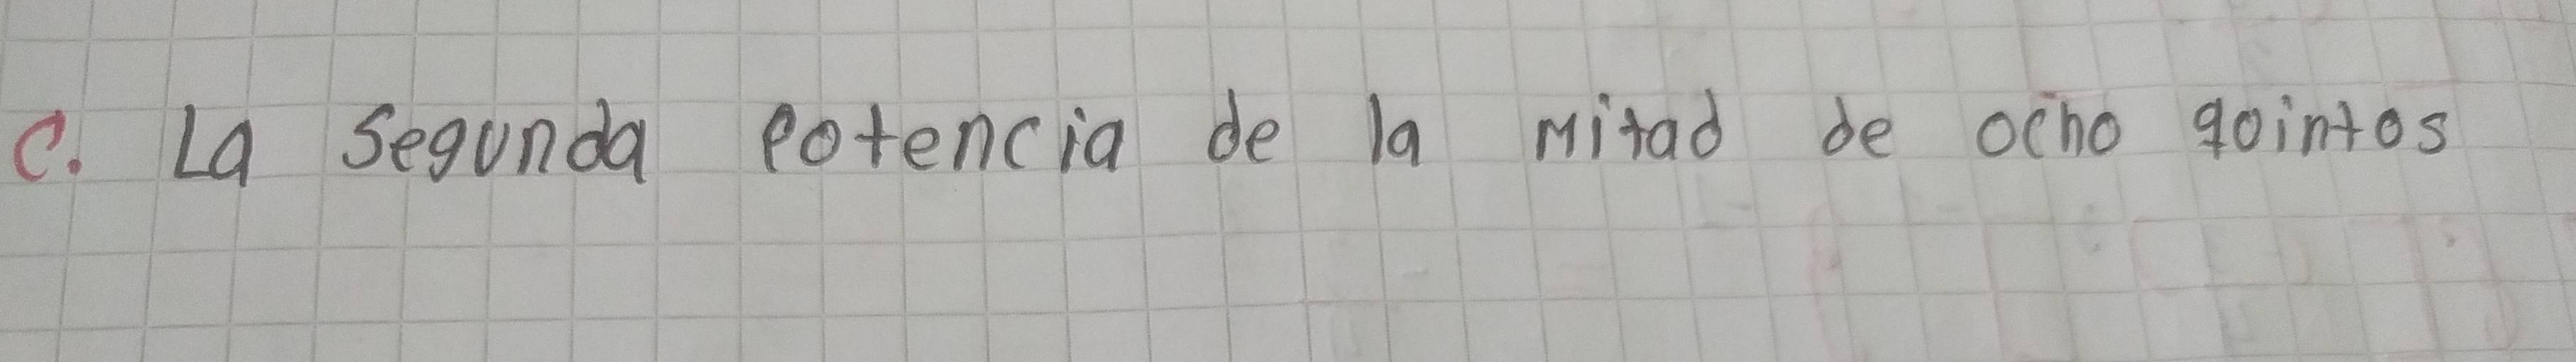 C. La segunda potencia de la mitad de ocho qointos